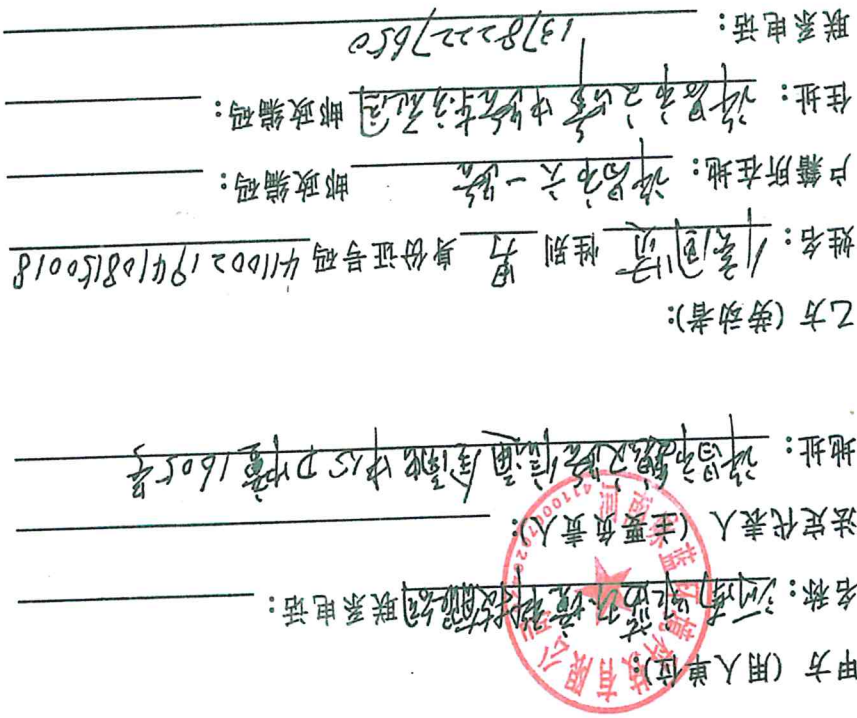 甲方(用人单位):
名称:河南绿蓝环境科技有限公司 联系电话:
法定代表人(主要负责人):
地址:许昌市魏文路信通金融中心D幢1605号
乙方(劳动者):
姓名: 性别 男 身份证号码 411002194108150018
户籍所在地:许昌市六一路 邮政编码:
住址:许昌市 邮政编码:
联系电话:13782227650